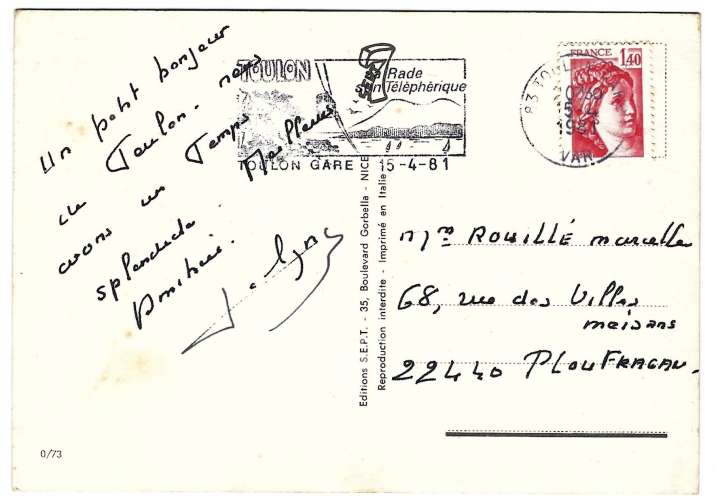 Un petit bonjour
de Toulon. nous
avons un Temps
splendide.
Amitiés.
TOULON
Sa Rade
Son Téléphérique
TOULON GARE 15-4-81
FRANCE
1,40
83 TOULON
VAR
Editions S.E.P.T. - 35, Boulevard Gorbella - NICE
Reproduction interdite - Imprimé en Italie
Mme ROUILLÉ Marcelle
68, rue des Villes
meisans
22440 PLOUFRAGAN.
0/73